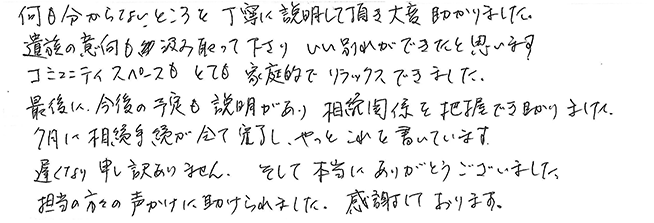 何も分からないところを丁寧に説明して頂き大変助かりました。
遺族の意向も汲み取って下さり いい別れができたと思います
コミュニティスペースも とても 家庭的で リラックスできました。
最後に、今後の予定も説明があり 相続関係を把握でき助かりました。
7月に相続手続が全て完了し、やっとこれを書いています。
遅くなり申し訳ありません。 そして本当にありがとうございました。
担当の方々の声かけに助けられました。感謝して おります。